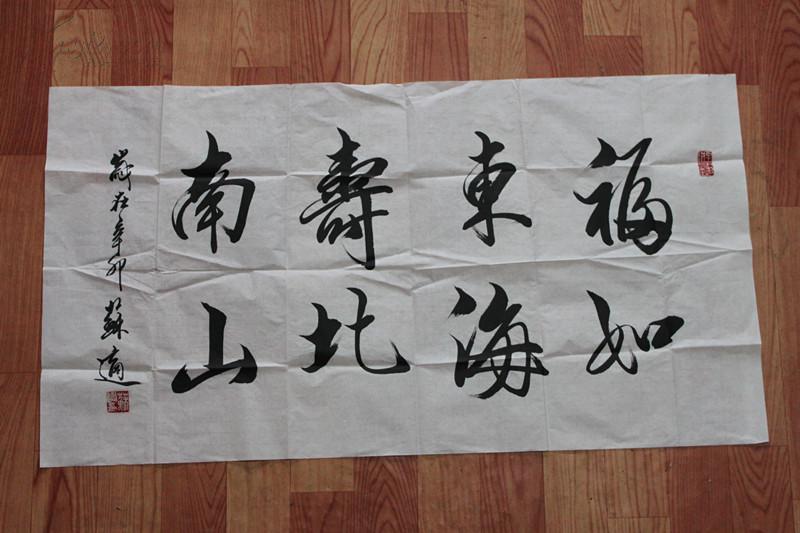 福如
東海
壽北
南山
歲在辛卯 蘇適